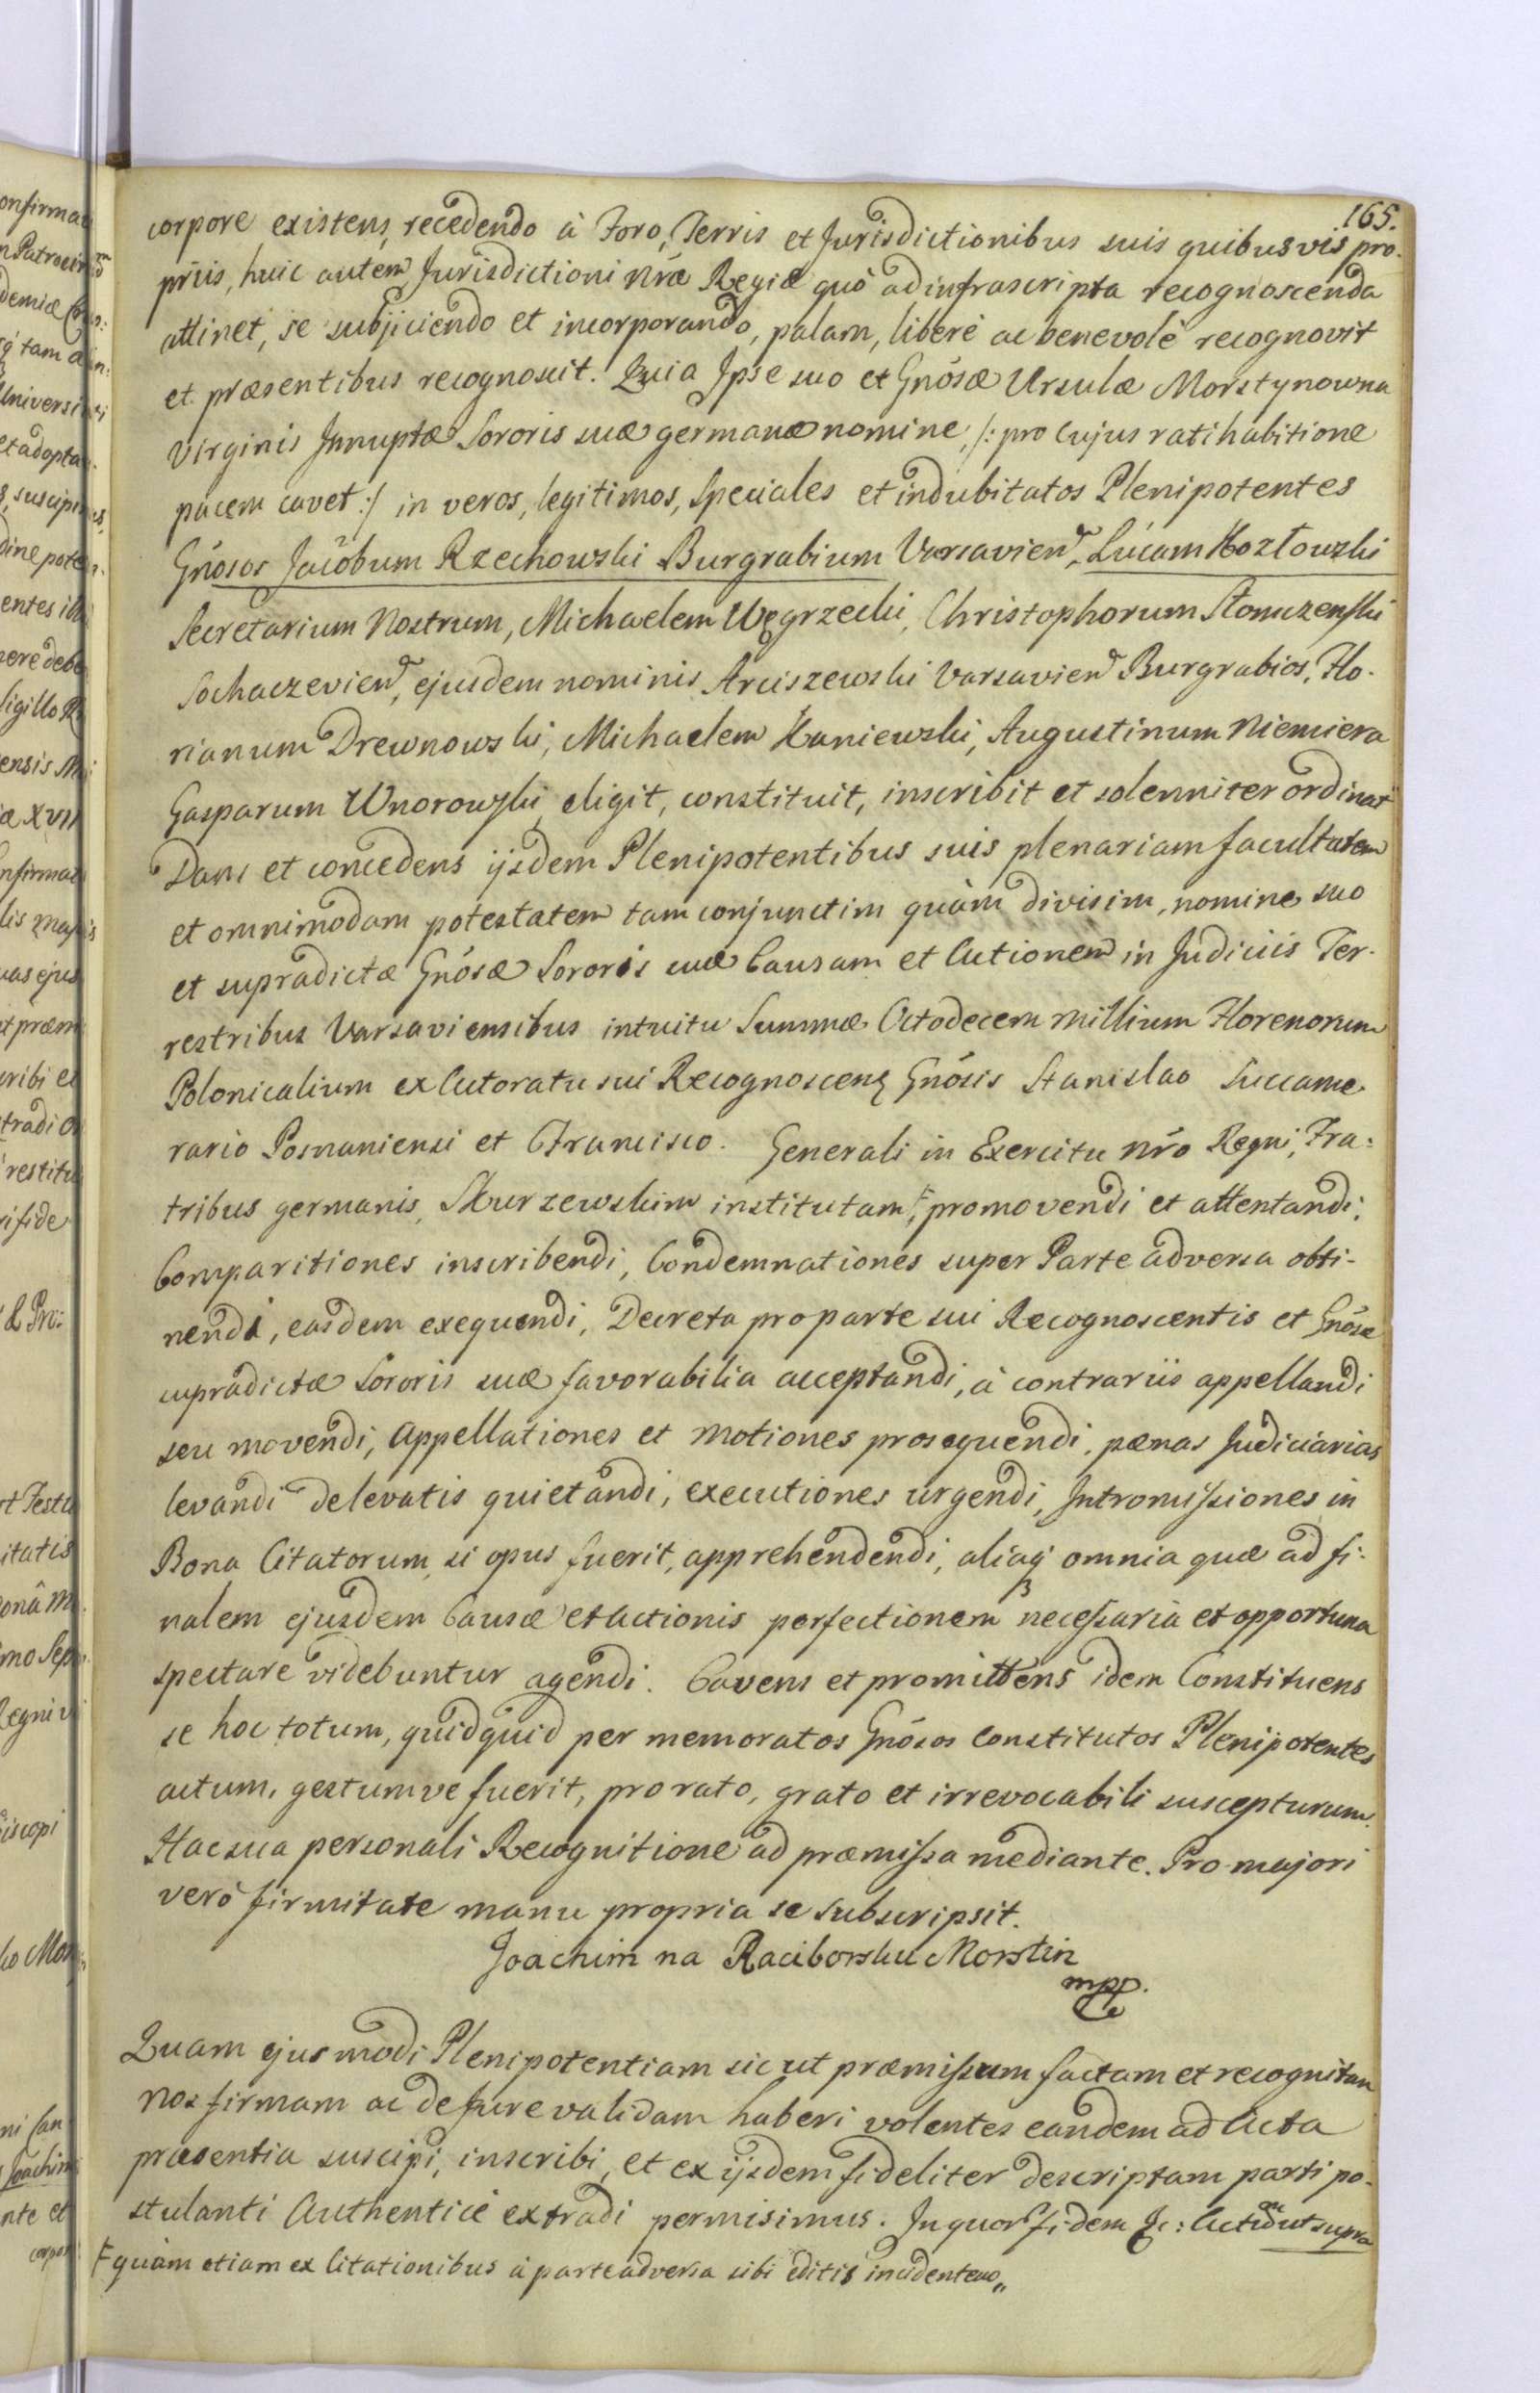 165.
corpore existens, recedendo à Foro, Terris et Jurisdictionibus suis quibusvis pro-
priis, huic autem Jurisdictioni Nrae Regiae quò ad infrascripta recognoscenda
attinet, se subjiciendo et incorporando, palam, liberè ac benevolè recognovit
et praesentibus recognoscit. Quia Ipse suo et Gnosae Ursulae Morstynowna
Virginis Innuptae Sororis suae germanae nomine, /: pro cujus ratihabitione
pacem cavet :/ in veros, legitimos, speciales et indubitatos Plenipotentes
Gnosos Jacobum Rzechowski Burgrabium Varsavien, Lucam Kozłowski
Secretarium Nostrum, Michaelem Węgrzecki, Christophorum Słomczenski
Sochaczevien, ejusdem nominis Arciszewski Varsavien Burgrabios, Flo-
rianum Drewnowski, Michaelem Kaniewski, Augustinum Niemiera
Gasparum Wnorowski, eligit, constituit, inscribit et solenniter ordinat
Dans et concedens ijsdem Plenipotentibus suis plenariam facultatem
et omnimodam potestatem tam conjunctim quàm divisim, nomine suo
et supradictae Gnosae Sororis suae Causam et Actionem in Judiciis Ter-
restribus Varsaviensibus intuitu Summae Octodecem millium Florenorum
Polonicalium ex Actoratu sui Recognoscens Gnosis Stanislao Succame-
rario Posnaniensi et Francisco Generali in Exercitu Nro Regni, Fra-
tribus germanis, Skurzewskim institutam F, promovendi et attentandi,
Comparitiones inscribendi, Condemnationes super Parte adversa obti-
nendi, easdem exequendi, Decreta pro parte sui Recognoscentis et Gnosae
supradictae Sororis suae favorabilia acceptandi, à contrariis appellandi
seu movendi, Appellationes et Motiones prosequendi, paenas Judiciarias
levandi de levatis quietandi, executiones urgendi, Intromissiones in
Bona Citatorum, si opus fuerit, apprehendendi, aliaq3 omnia quae ad fi-
nalem ejusdem Causae et Actionis perfectionem necessaria et opportuna
spectare videbuntur agendi. Cavens et promittens idem Constituens
se hoc totum, quidquid per memoratos Gnosos Constitutos Plenipotentes
actum, gestumve fuerit, pro rato, grato et irrevocabili suscepturum.
Hac sua personali Recognitione ad praemissa mediante. Pro majori
verò firmitate manu propria se subscripsit.
Joachim na Raciborsku Morstin
mpp.
Quam ejusmodi Plenipotentiam sic ut praemissum factam et recognitam
Nos firmam ac de Jure validam haberi volentes eandem ad Acta
praesentia suscipi, inscribi, et ex ijsdem fideliter descriptam parti po-
stulanti Authenticè extradi permisimus. In quor fidem &c: Actum ut supra
F quàm etiam ex Citationibus à parte adversa sibi editis incidentem„